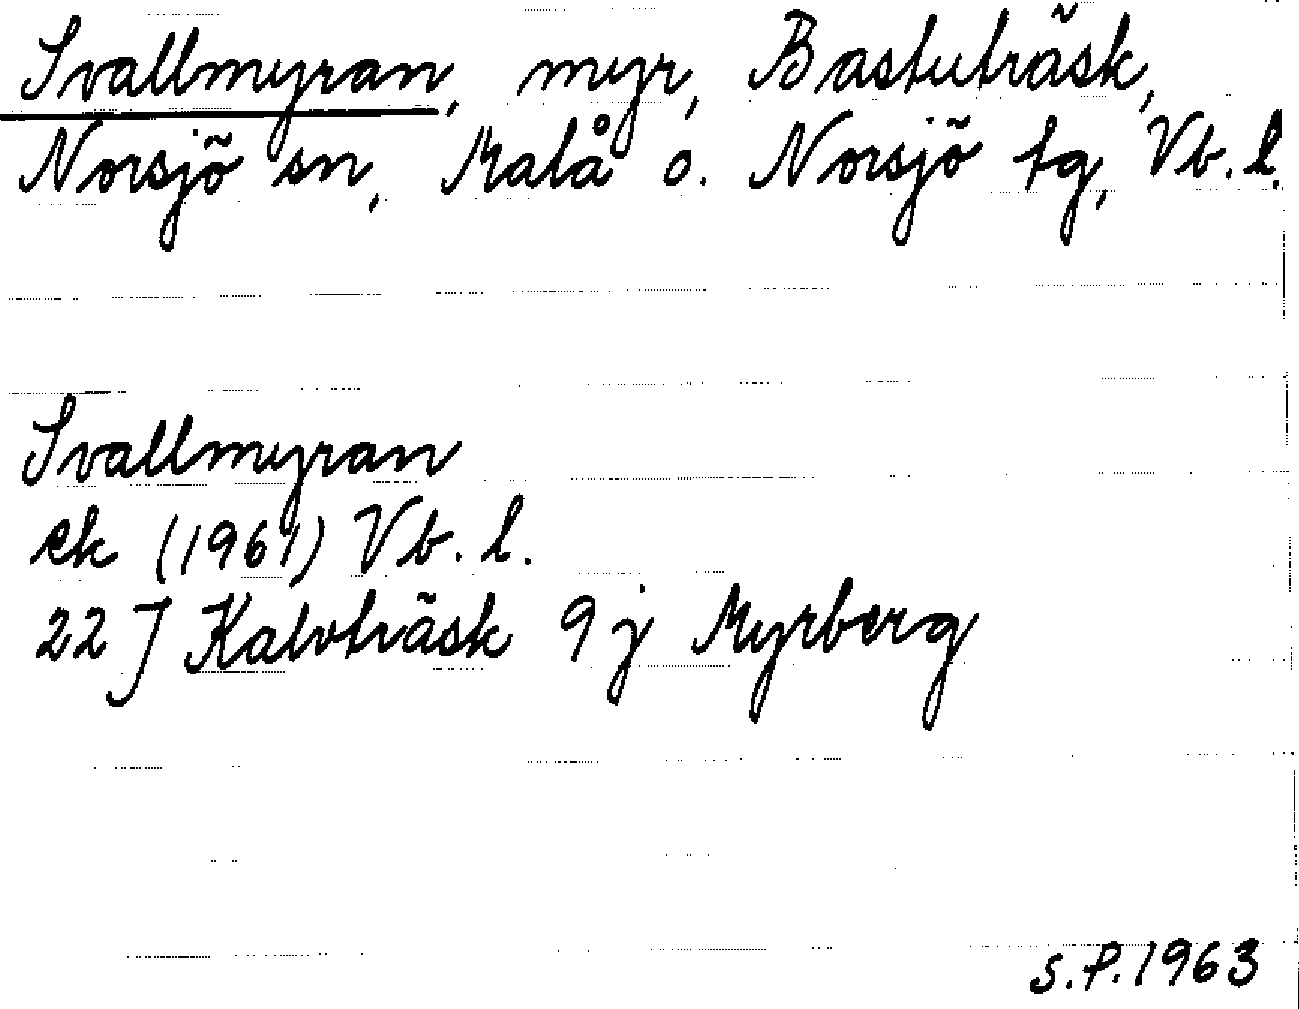 Svallmyran, myr, Bastuträsk,
Norsjö sn, Malå o. Norsjö tg, Vb. l.
Svallmyran
ek (1961) Vb. l.
22 J Kalvträsk 9 j Myrberg
S.P. 1963